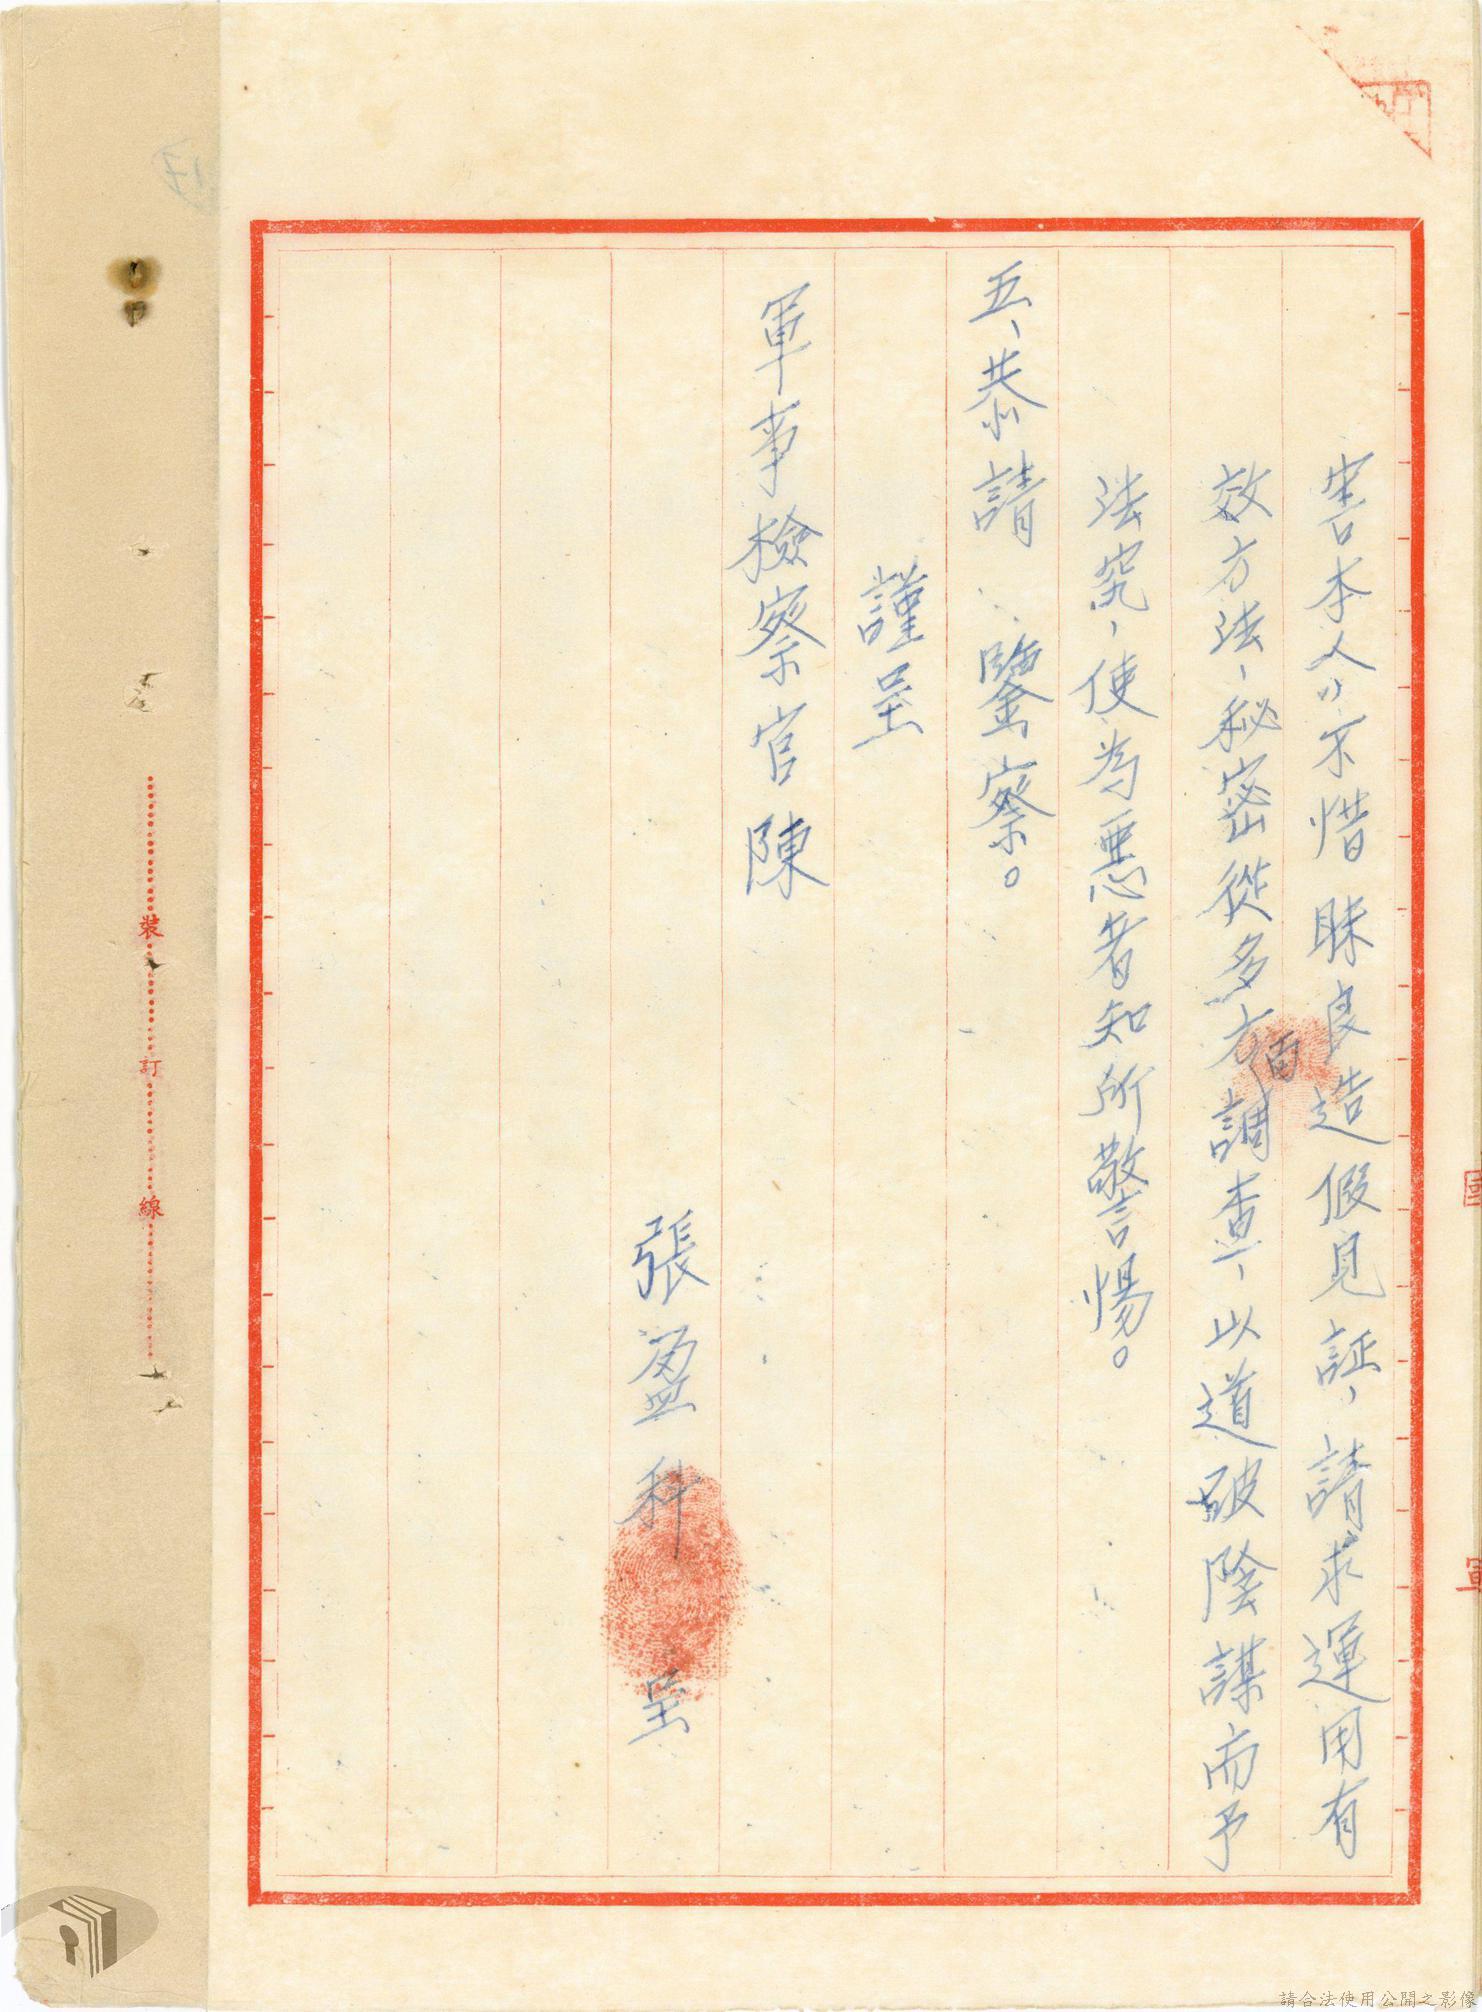 害本人〃不惜昧良造假見証，請求運用有
效方法，秘密從多方面調查，以道破陰謀而予
法究，使為惡者知所警惕。
五、恭請　鑒察。
謹呈
軍事檢察官陳
張盈科　呈
裝訂線
請合法使用公開之影像